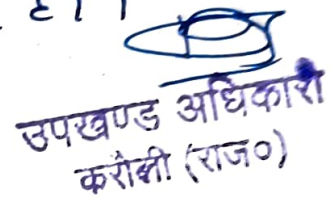 है।
उपखण्ड अधिकारी
करौली (राज०)